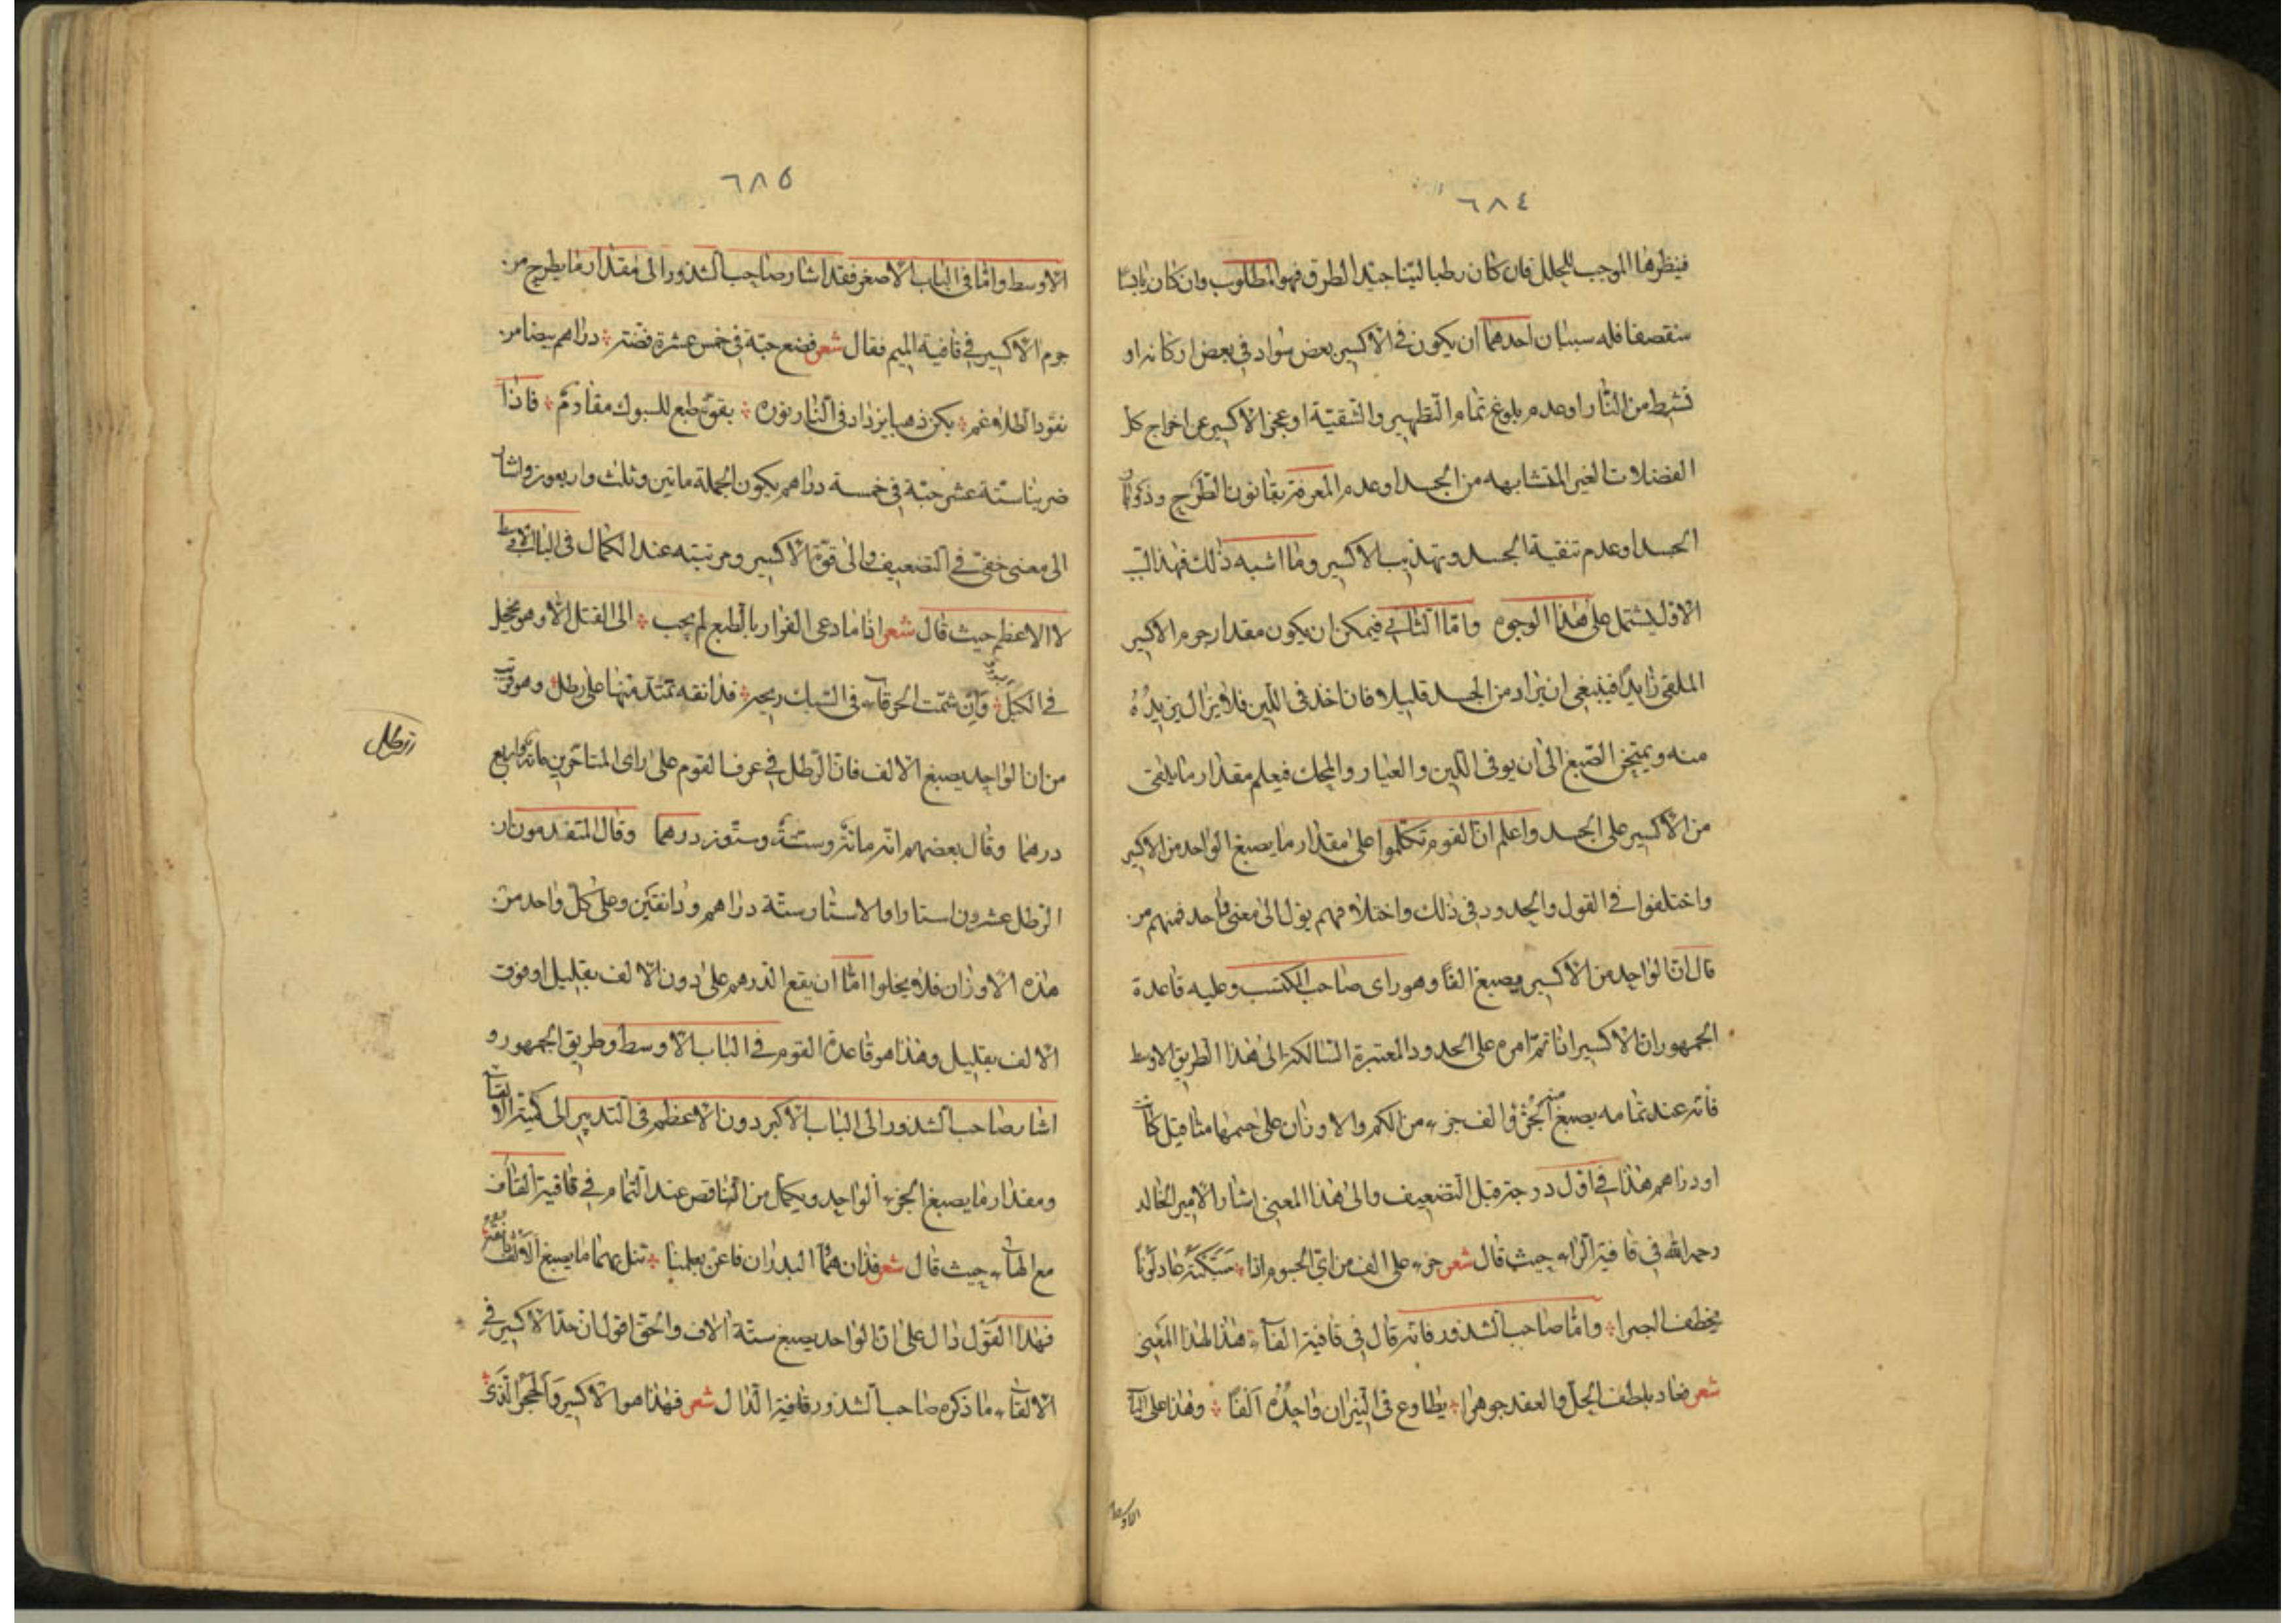 ٦٨٤
فينظرها الموجب للخلل فان كان رطبا لينا جيد الطرق فهو المطلوب وان كان يابسا
متقصفا فله سببان احدهما ان يكون في الاكسير بعض سواد في بعض اركانه او
من النار او عدم بلوغ تمام التطهير والتنقية او عجز الاكسير عن اخراج كل
الفضلات الغير المتشابهه من الجسد او عدم المعرفة بقانون الطرح
الجسد او عدم تنقية الجسد وتهذيب الاكسير وما اشبه ذلك فهذا السبب
الاول يشتمل على هذا الوجوه واما الثاني فيمكن ان يكون مقدار جرم الاكسير
الملقى زايدا فينبغي ان يزاد من الجسد قليلا فان اخذ في اللين فلا يزال يزيده
منه ويمتحن الصبغ الى ان يوفى اللين والعيار والمحك فيعلم مقدار ما يلقى
من الاكسير على الجسد واعلم ان القوم تكلموا على مقدار ما يصبغ الواحد من الاكسير
واختلفوا في القول والحدود في ذلك واختلافهم يؤل الى معنى واحد فمنهم من
قال ان الواحد من الاكسير يصبغ الفا وهو راى صاحب المكتسب وعليه قاعدة
الجمهور ان الاكسير اذا تم امره على الحدود المعتبرة السالكة الى هذا الطريق الاوسط
فانه عند تمامه يصبغ منه الجزؤ الف جزء من الكم والاوزان على حسبها مثاقيل كانت
او دراهم هذا في اول درجة قبل التضعيف والى هذا المعنى اشار الامير الخالد
رحمه الله في قافية الراء حيث قال شعر جزء على الف من اي الجسوم اذا سبكته عاد لونا
يخطف البصرا واما صاحب الشذور فانه قال في قافية الفاء هذا لهذا المعنى
شعر فعاد بلطف الحل والعقد جوهرا يطاوع في النيران واحده الفا وهذا على الباب
الاوسط
٦٨٥
الاوسط واما في الباب الاصغر فقد اشار صاحب الشذور الى مقدار ما يطرح من
جرم الاكسير في قافية الميم فقال شعر فضع حبة في خمس عشرة فضة دراهم بيضا من
نقود يكن ذهبا يزداد في النار نوره بقوة طبع للسبوك مقادم فاذا
ضربنا ستة عشر حبة في خمسة دراهم يكون الجملة ماتين وثلث واربعون واشار
الى معنى خفي في التضعيف والى قوة الاكسير ومرتبته عند الكمال في الباب الاوسط
لا الاعظم حيث قال شعر اذا ما دعى الفرار بالطبع لم يجب الى القتل الا وهو مخجل
في الكبل وان شئت في السبك فدانقه تمتد منها على رطل وهو قريب
من ان الواحد يصبغ الالف فان الرطل في عرف القوم على راى المتاخرين مائة واربع
درهما وقال بعضهم انه مائة وستة وستون درهما وقال المتقدمون ان
الرطل عشرون استارا والاستار ستة دراهم ودانقين وعلى كل واحد من
هذه الاوزان فلا يخلوا اما ان يقع الدرهم على دون الالف بقليل او فوق
الالف بقليل وهذا هو قاعدة القوم في الباب الاوسط وطريق الجمهور و
اشار صاحب الشذور الى الباب الاكبر دون الاعظم في التدبير الى كمية
ومقدار ما يصبغ الجزء الواحد ويكمل من الناقص عند التمام في قافية القاف
مع الهاء حيث قال شعر فذان هما البدران فاغن بعلمنا تنل بهما ما يصبغ الالف
فهذا القول دال على ان الواحد يصبغ ستة الاف والحق اقول ان حد الاكسير في
الالقاء ما ذكره صاحب الشذور قافية الدال شعر فهذا هو الاكسير والحجر الذي
رطل